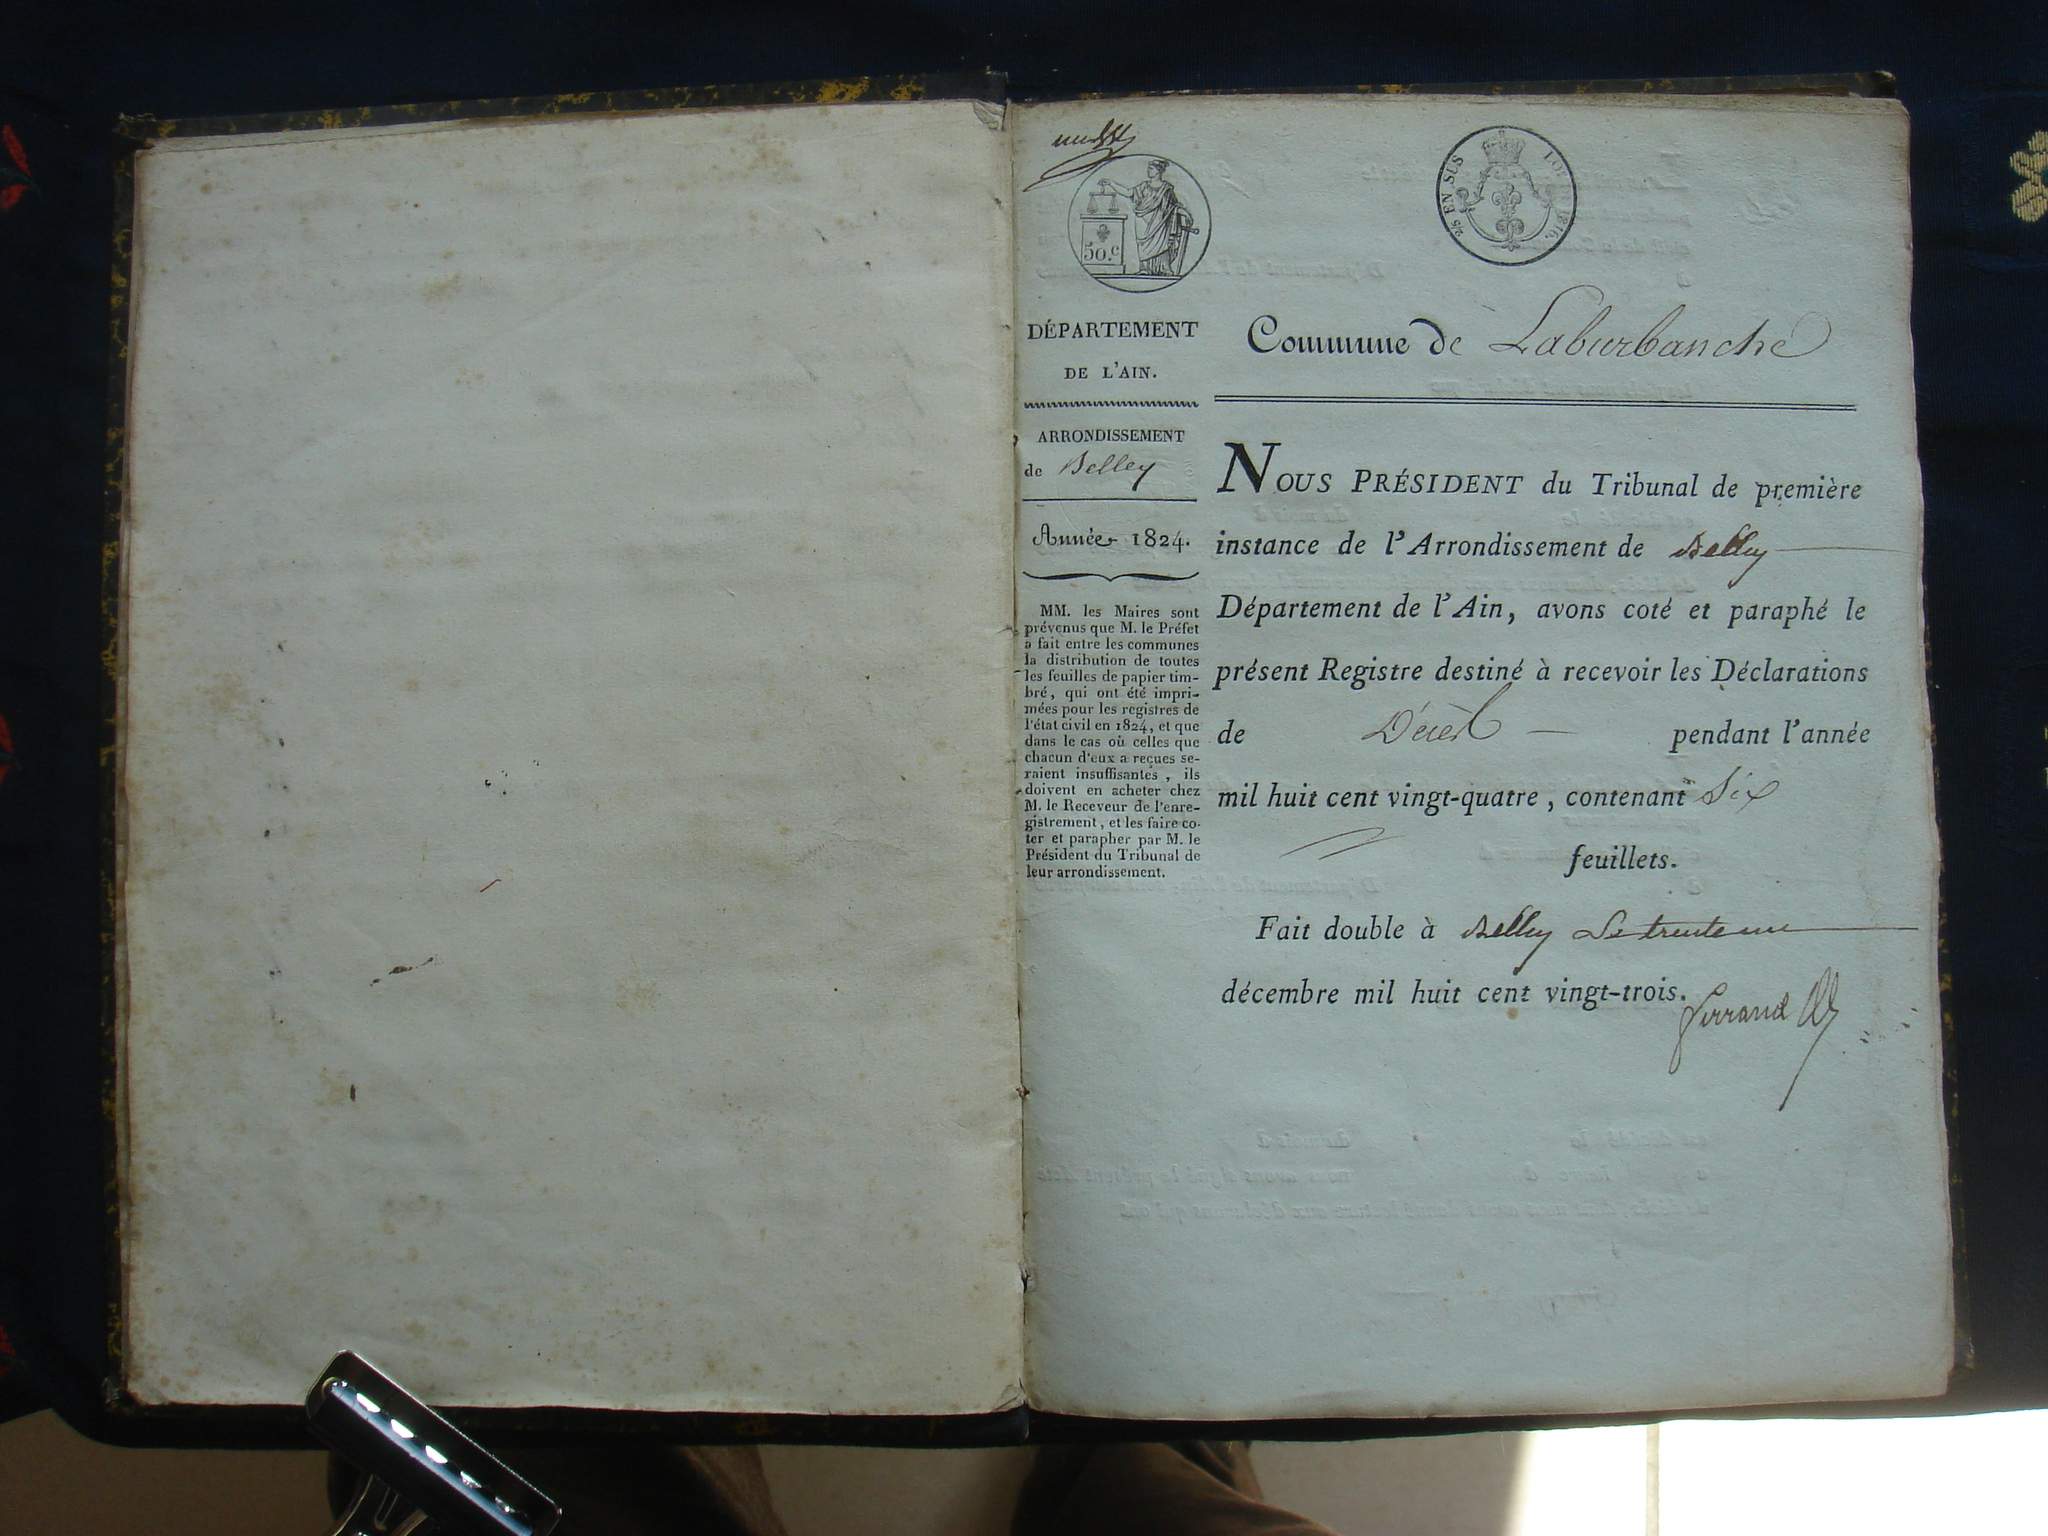 50.c
25 EN SUS
1816.
DÉPARTEMENT
DE L'AIN.
ARRONDISSEMENT
de Belley
Année 1824.
MM. les Maires sont
prévenus que M. le Préfet
a fait entre les communes
la distribution de toutes
les feuilles de papier tim-
bré, qui ont été impri-
mées pour les registres de
l'état civil en 1824, et que
dans le cas où celles que
chacun d'eux a reçues se-
raient insuffisantes, ils
doivent en acheter chez
M. le Receveur de l'enre-
gistrement, et les faire co-
ter et parapher par M. le
Président du Tribunal de
leur arrondissement.
Commune de Laburbanche
NOUS PRÉSIDENT du Tribunal de première
instance de l'Arrondissement de Belley
Département de l'Ain, avons coté et paraphé le
présent Registre destiné à recevoir les Déclarations
de Décès pendant l'année
mil huit cent vingt-quatre, contenant Six
feuillets.
Fait double à Belley Le trente un
décembre mil huit cent vingt-trois.